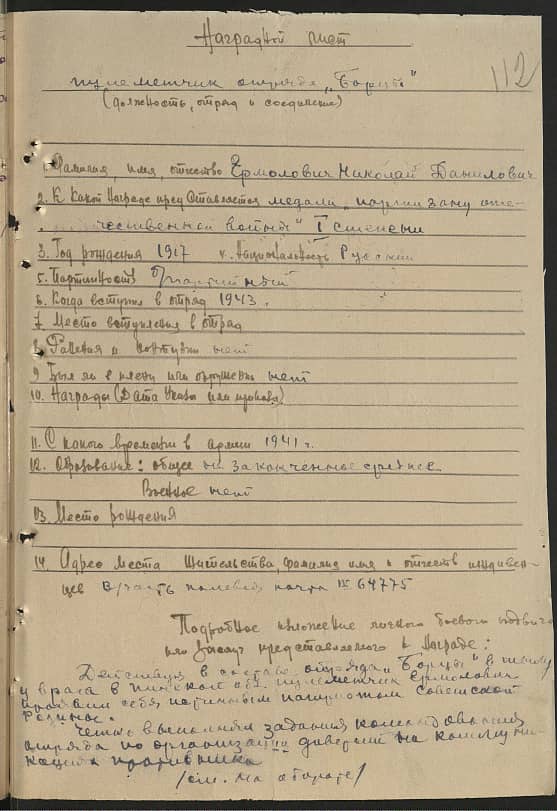 Наградной лист
112
пулеметчик отряда "Борцы"
(должность, отряд и соединение)
1. Фамилия, имя, отчество Ермолович Николай Данилович
2. К какой награде представляется медали "партизану оте-
чественной войны" I степени
3. Год рождения 1917 4. Национальность Русский
5. Партийность б/партийный
6. Когда вступил в отряд 1943 г.
7. Место вступления в отряд
8. Ранения и контузии нет
9. Был ли в плену или окружении нет
10. Награды (Дата Указа или приказа)
11. С какого времени в армии 1941 г.
12. Образование: общее не законченное среднее
Военное нет
13. Место рождения
14. Адрес места жительства, фамилия имя и отчеств иждивен-
цев В/часть полевая почта № 64775
Подробное изложение личного боевого подвига
или заслуг представляемого к награде:
Действуя в составе отряда "Борцы" в тылу
у врага в Пинской обл. пулеметчик Ермолович
проявил себя истинным патриотом Советской
Родины.
Четко выполнял задания командования
отряда по организации диверсий на коммуни-
кациях противника
/см. на обороте/